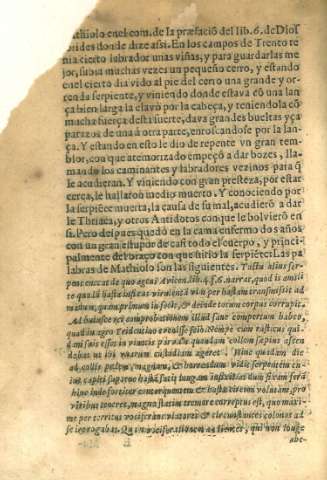 athiolo enel com. de la præfació del lib. 6. de Dios
orides donde dize assi. En los campos de Trento te
nia cierto labrador unas viñas, y para guardarlas me
jor, subia muchas vezes un pequeño cerro, y estando
en el cierto dia vido al pie del cerro una grande y or-
renda serpiente, y viniendo donde estava có una lan
ça bien larga la clavò por la cabeça, y teniendola có
mucha fuerça desta suerte, dava grandes bueltas y ça
parazos de una á otra parte, enroscandose por la lan-
ça. Y estando en esto le dio de repente vn gran tem-
blor, con que atemorizado empeçò a dar bozes, lla-
mando los caminantes y labradores vezinos para q̃
le acudieran. Y viniendo con gran presteza, por estar
cerca, le hallaron medio muerto. Y conociendo por
la serpiẽte muerta, la causa de su mal, acudierò a dar
le Theriaca, y otros Antidotos con que le bolvierõ en
si. Pero despues quedó en la cama enfermo dos años
con un gran estupor de casi todo el cuerpo, y princi-
palmente del braço con que hirio la serpiẽte. Las pa
labras de Mathiolo son las siguientes. Tasta huius ser-
pentem eat de quo agens Avicen. lib. 4. f. 6. narrat, quod is emitis
se qualù hasta insticus viruenta vim per hastam transmissit ad
manum, quam primum in sede, & deinde totum corpus corrupit.
Ad huiusce rei comprobationem illud sane compertum habeo,
quod in agro Tridentino evenisse scio. Nempe cum rusticus qui-
dam sais esset in vineis parare quendam collem sæpius ascen
debat ut ibi uvarum custodiam ageret. Hinc quadam die
ad collis pedem, magnam, & horrendum vidit serpentem cu
ius capiti sagaro hasta satis longum infixit ad dum fixam fera
hinc inde fortiter conterquentem & hasta citerim volutam, pro
viribus teneret, magno statim tremore correptus est, quo maxi-
me perterritus vociferans viatores & circunstantes colonos ad
se invocabas. Qui vociferationem audientes, qui non longe
abe-